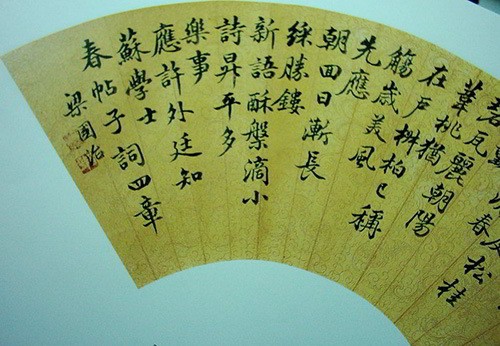 春松桂
瓦麗朝陽
葦桃猶
在戶椒柏已稱
觴歲美風
先應
朝回日漸長
綵勝鏤
新語酥槃滴小
詩昇平多
樂事
應許外廷知
蘇學士
春帖子詞四章
梁國治